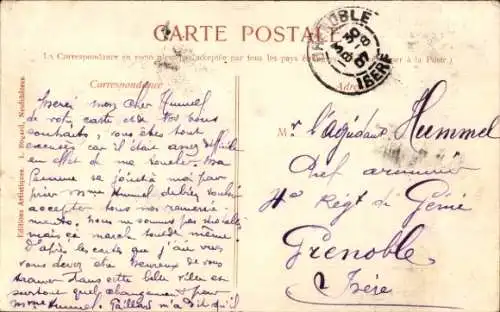 CARTE POSTALE
La Correspondance au recto n'est pas acceptée par tous les pays à la Poste.)
Correspondance
Adre
GRENOBLE
ISERE
Editions Artistiques. L. Bogard, Neufchâteau.
Merci mon cher Hummel
de votre carte et de vos bons
souhaits, vous êtes tout
excusé car il était assez difficile
en effet de me souhaiter. Ma
femme se joint à moi pour
prier Mme Hummel de bien vouloir
accepter tous nos remercie
ments. Nous ne sommes pas installés
mais ça marche tout de même
D'après les cartes que j'ai vues
vous devez être heureux de vous
trouver dans cette belle ville et
surtout quel changement pour
Mme Hummel. Gaillard m'a dit qu'il
Mr l'Adjudant Hummel
Chef armurier
4e Régt de Génie
Grenoble
Isère